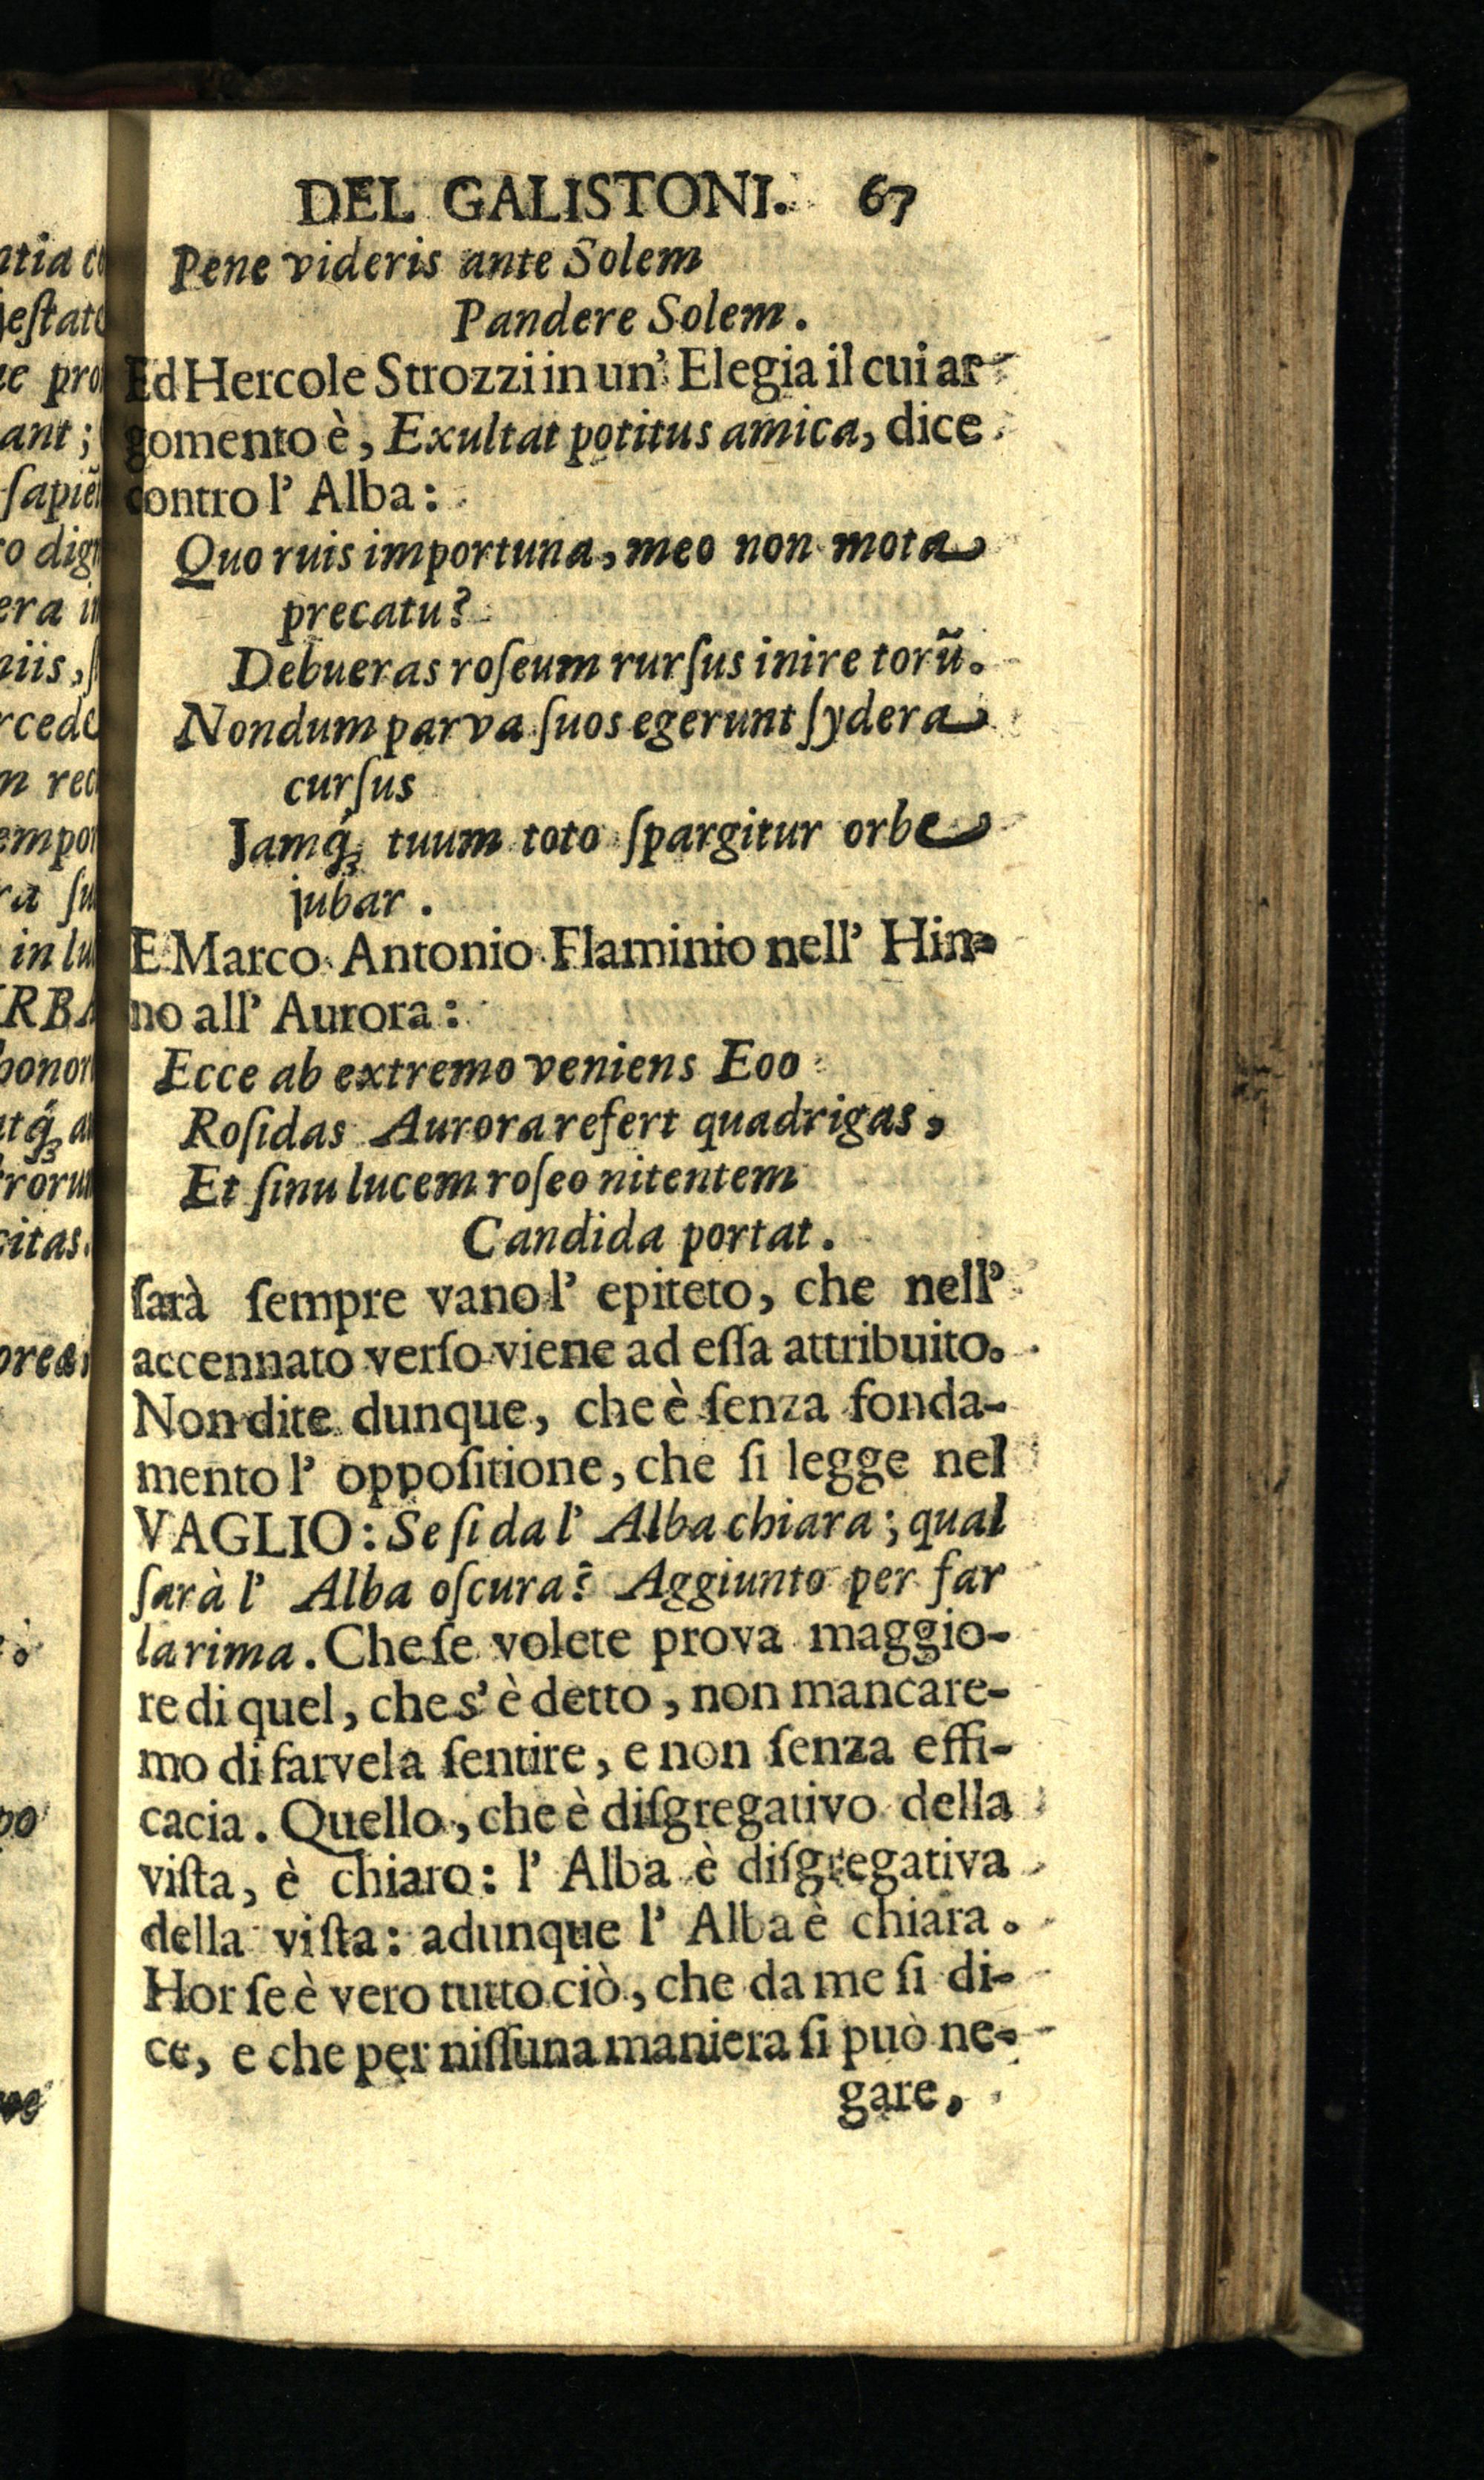 DEL GALISTONI. 67
Pene videris ante Solem
Pandere Solem.
Ed Hercole Strozzi in un' Elegia il cui ar-
gomento è, Exultat potitus amica, dice
contro l' Alba:
Quo ruis importuna, meo non mota
precatu?
Debueras roſeum rurſus inire torũ.
Nondum parva ſuos egerunt ſydera
curſus
Jamq́ꝫ tuum toto ſpargitur orbe
jubar.
E Marco Antonio Flaminio nell' Hin-
no all' Aurora:
Ecce ab extremo veniens Eoo
Roſidas Aurora refert quadrigas,
Et ſinu lucem roſeo nitentem
Candida portat.
ſarà ſempre vano l' epiteto, che nell'
accennato verſo viene ad eſſa attribuito.
Non dite dunque, che è ſenza fonda-
mento l' oppoſitione, che ſi legge nel
VAGLIO: Se ſi da l' Alba chiara; qual
ſarà l' Alba oſcura? Aggiunto per far
la rima. Che ſe volete prova maggio-
re di quel, che s' è detto, non mancare-
mo di farvela ſentire, e non ſenza effi-
cacia. Quello, che è diſgregativo della
viſta, è chiaro: l' Alba è diſgregativa
della viſta: adunque l' Alba è chiara.
Hor ſe è vero tutto ciò, che da me ſi di-
ce, e che per niſſuna maniera ſi può ne-
gare,